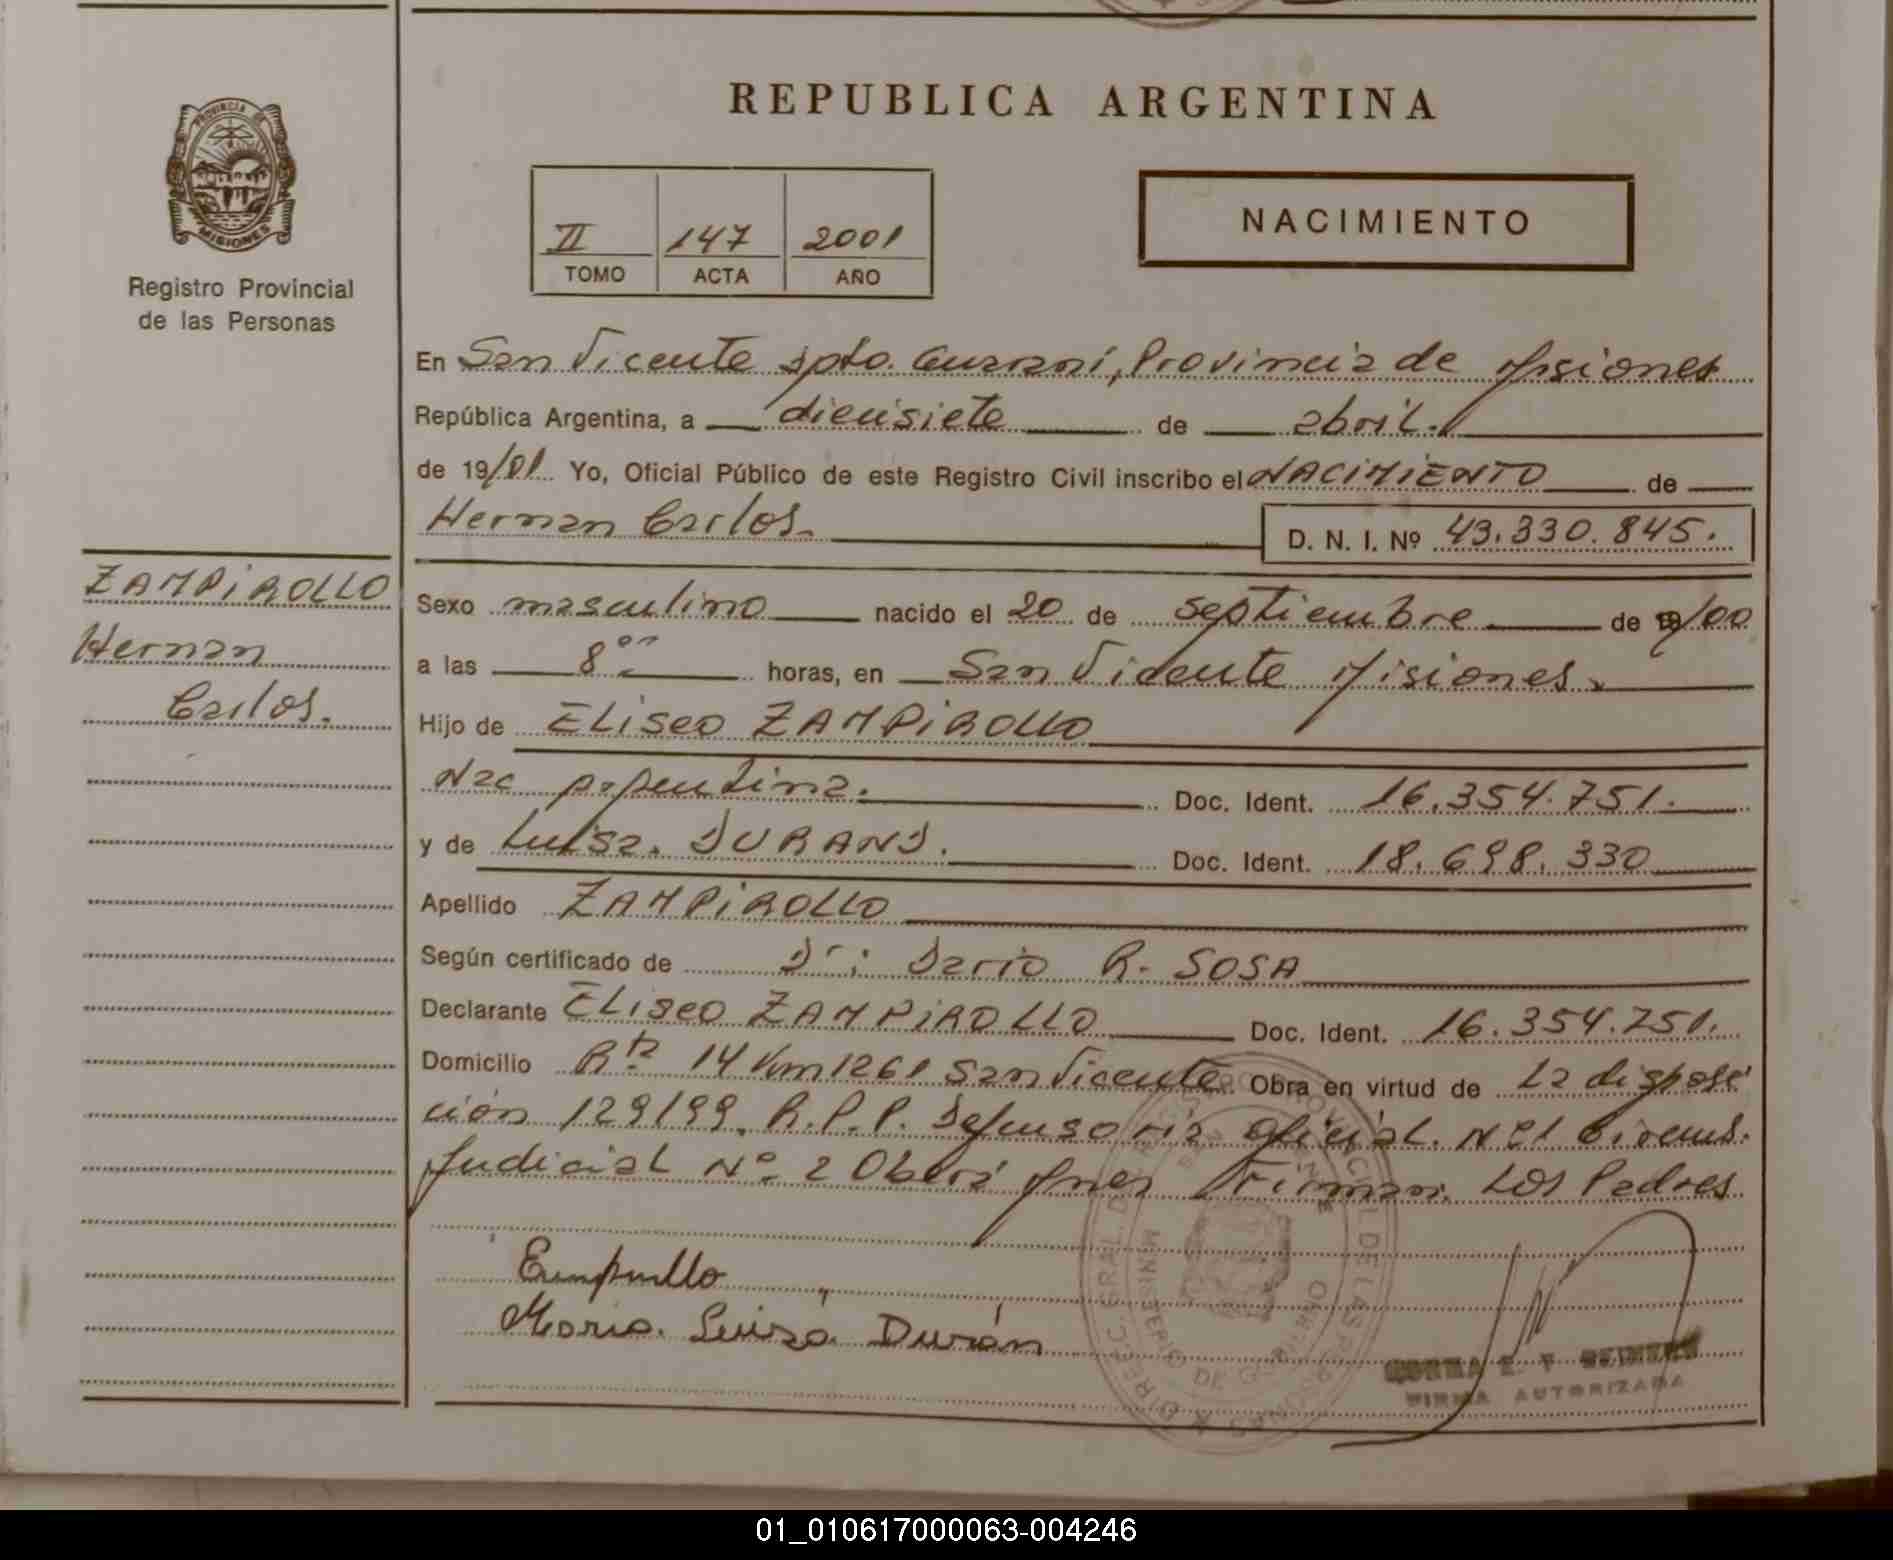 REPUBLICA ARGENTINA
PROVINCIA DE
MISIONES
Registro Provincial
de las Personas
II 147 2001
TOMO ACTA AÑO
NACIMIENTO
En San Vicente Dpto. Guarani, Provincia de Misiones
República Argentina, a diecisiete de abril.
de 19/01 Yo, Oficial Público de este Registro Civil inscribo el NACIMIENTO de
Hernan Carlos. D. N. I. Nº 43.330.845.
ZAMPIROLLO
Hernan
Carlos.
Sexo masculino nacido el 20 de septiembre de 19/00
a las 8 horas, en San Vicente Misiones.
Hijo de ELISEO ZAMPIROLLO
Nac Argentina. Doc. Ident. 16.354.751.
y de Luisa. DURAND. Doc. Ident. 18.698.330
Apellido ZAMPIROLLO
Según certificado de Dr: Dario R. SOSA
Declarante ELISEO ZAMPIROLLO Doc. Ident. 16.354.751.
Domicilio Rta 14 Km 1261 San Vicente. Obra en virtud de La disposi
ción 129/99. R.P.P. Defensoria Oficial. Nº1 Circuns.
Judicial Nº 2 Oberá Mnes Firman. Los Padres
Maria. Luisa Durán
FIRMA AUTORIZADA
01_010617000063-004246